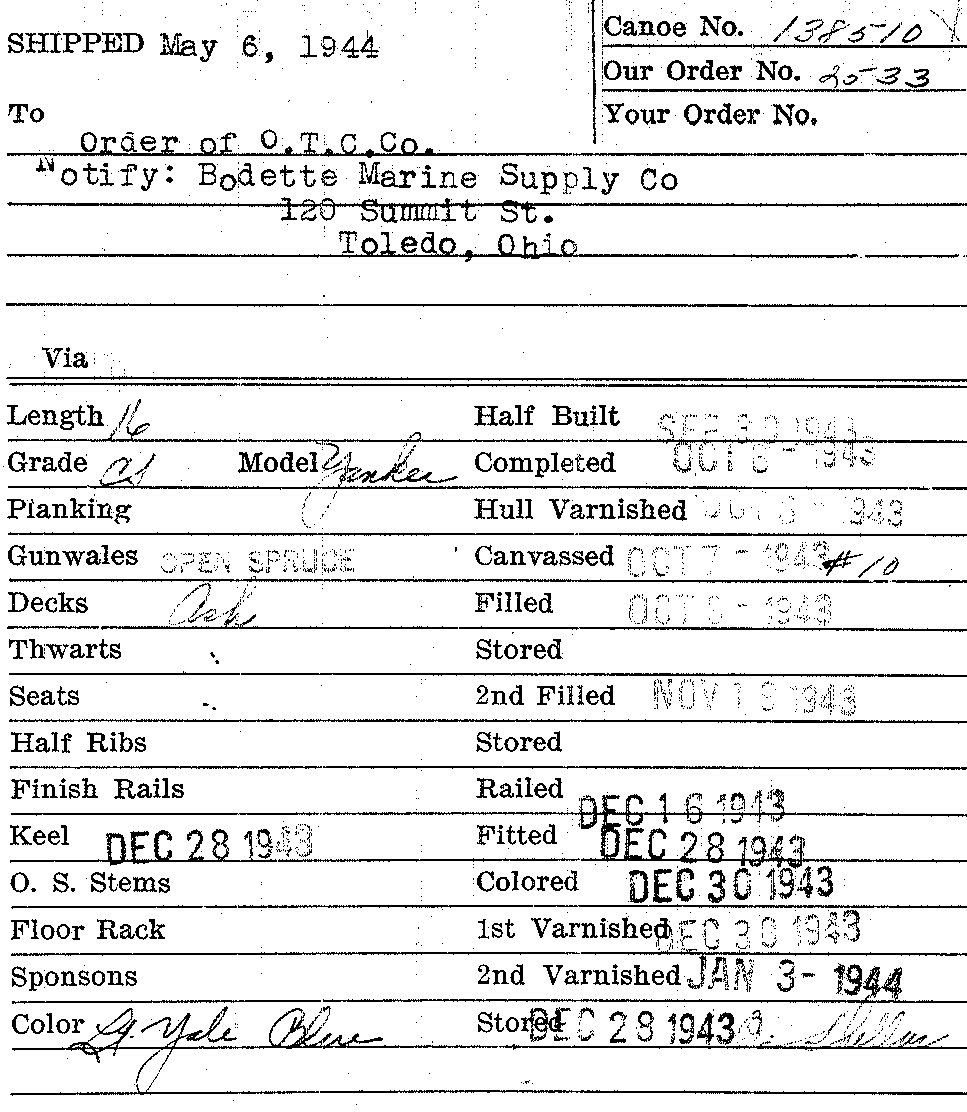 SHIPPED May 6, 1944
Canoe No. 138510
Our Order No. 2533
To
Your Order No.
Order of O.T.C.Co.
Notify: Bodette Marine Supply Co
120 Summit St.
Toledo, Ohio
Via
Length 16 Half Built SEP 30 1943
Grade CS Model Yankee Completed OCT 6 - 1943
Planking Hull Varnished OCT 6 - 1943
Gunwales OPEN SPRUCE Canvassed OCT 7 - 1943 #10
Decks Ash Filled OCT - 1943
Thwarts Stored
Seats 2nd Filled NOV 1 1943
Half Ribs Stored
Finish Rails Railed DEC 16 1943
Keel DEC 28 1943 Fitted DEC 28 1943
O. S. Stems Colored DEC 30 1943
Floor Rack 1st Varnished DEC 30 1943
Sponsons 2nd Varnished JAN 3- 1944
Color Lt. Yale Blue Stored DEC 28 1943